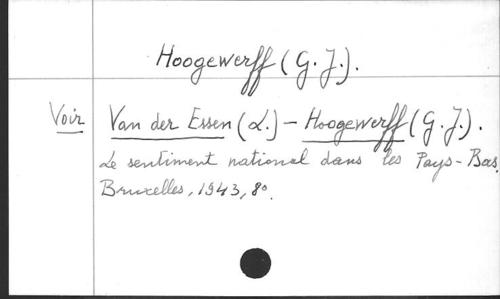 Hoogewerff (G. J.).
Voir Van der Essen (L.) - Hoogewerff (G. J.).
Le sentiment national dans les Pays-Bas.
Bruxelles, 1943, 8º.